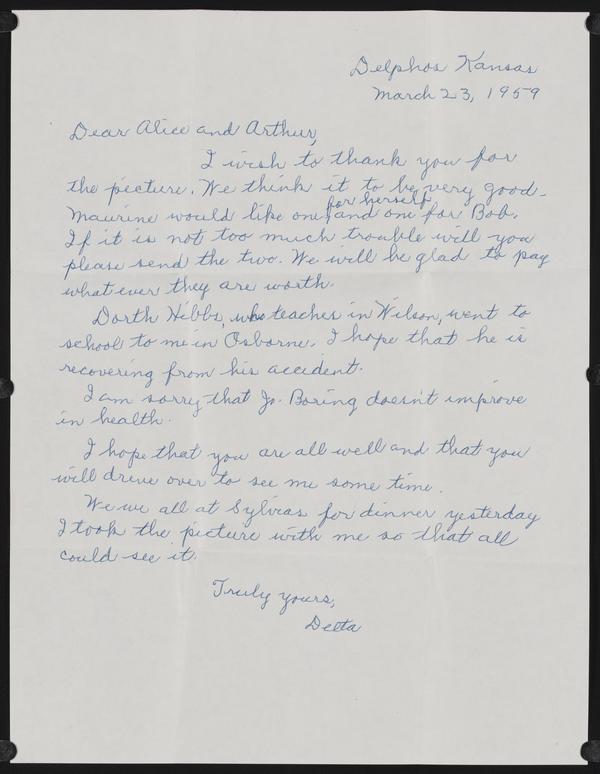 Delphos Kansas
March 23, 1959
Dear Alice and Arthur,
I wish to thank you for
the picture. We think it to be very good.
Maurine would like one for herself and one for Bob.
If it is not too much trouble will you
please send the two. We will be glad to pay
whatever they are worth.
Dorth Hibbs, who teaches in Wilson, went to
school to me in Osborne. I hope that he is
recovering from his accident.
I am sorry that Jo. Boring doesn't improve
in health.
I hope that you are all well and that you
will drive over to see me some time.
We we all at Sylvias for dinner yesterday
I took the picture with me so that all
could see it.
Truly yours,
Delta